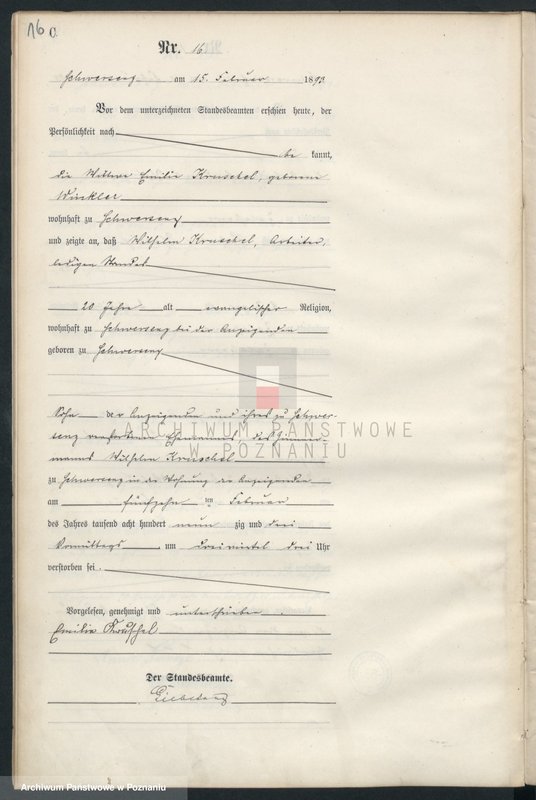 16 C.
Nr. 16
Schwersenz am 15. Februar 1893
Vor dem unterzeichneten Standesbeamten erschien heute, der
Persönlichkeit nach
be kannt,
die Wittwe Emilie Kruschel, geborene
Winkler
wohnhaft zu Schwersenz
und zeigte an, daß Wilhelm Kruschel, Arbeiter,
ledigen Standes
20 Jahre alt evangelischer Religion,
wohnhaft zu Schwersenz bei der Anzeigenden
geboren zu Schwersenz
Sohn der Anzeigenden und ihres zu Schwer-
senz verstorbenen Ehemannes des Zimmer-
manns Wilhelm Kruschel
zu Schwersenz in der Wohnung der Anzeigenden
am fünfzehn ten Februar
des Jahres tausend acht hundert neun zig und drei
Vormittags um dreiviertel drei Uhr
verstorben sei.
Vorgelesen, genehmigt und unterschrieben
Emilie Kruschel
Der Standesbeamte.
ARCHIWUM PAŃSTWOWE
W POZNANIU
Archiwum Państwowe w Poznaniu